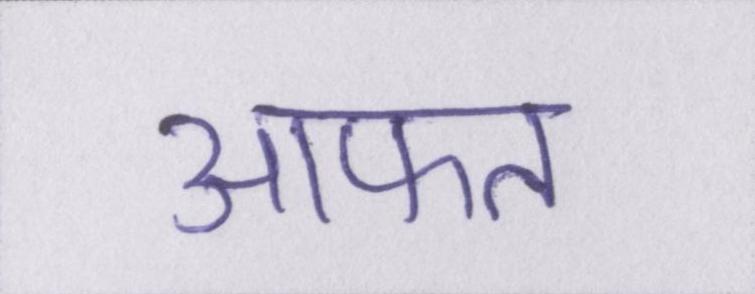 आफत